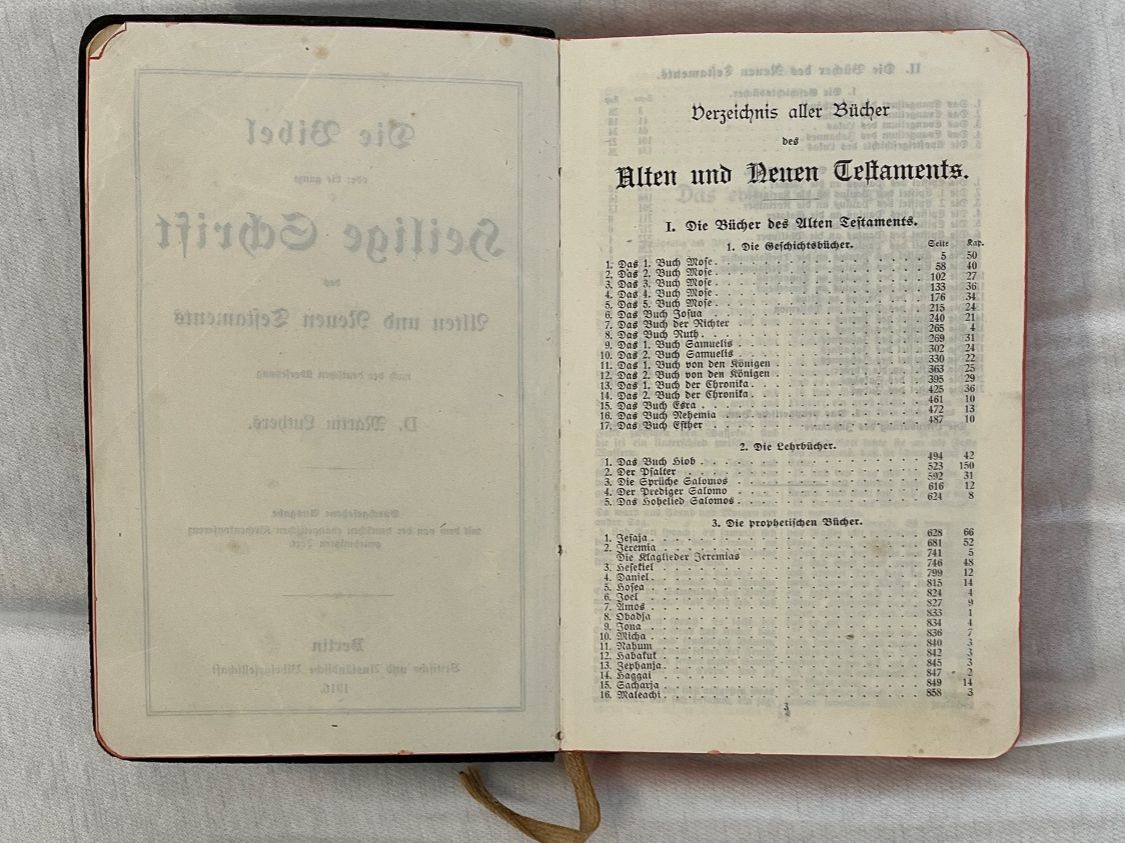 Die Bibel
oder die ganze
Heilige Schrift
des
Alten und Neuen Testaments
nach der deutschen Übersetzung
D. Martin Luthers.
Durchgesehene Ausgabe
mit dem von der deutschen evangelischen Kirchenkonferenz
genehmigten Text
Berlin
Britische und Ausländische Bibelgesellschaft
1910.
Verzeichnis aller Bücher
des
Alten und Neuen Testaments.
I. Die Bücher des Alten Testaments.
1. Die Geschichtsbücher. Seite Kap.
1. Das 1. Buch Mose . 5 50
2. Das 2. Buch Mose . 58 40
3. Das 3. Buch Mose . 102 27
4. Das 4. Buch Mose . 133 36
5. Das 5. Buch Mose . 176 34
6. Das Buch Josua . 215 24
7. Das Buch der Richter 240 21
8. Das Buch Ruth . 265 4
9. Das 1. Buch Samuelis 269 31
10. Das 2. Buch Samuelis . 302 24
11. Das 1. Buch von den Königen . 330 22
12. Das 2. Buch von den Königen . 363 25
13. Das 1. Buch der Chronika . 395 29
14. Das 2. Buch der Chronika . 425 36
15. Das Buch Esra . 461 10
16. Das Buch Nehemia . 472 13
17. Das Buch Esther . 487 10
2. Die Lehrbücher.
1. Das Buch Hiob . 494 42
2. Der Psalter . 523 150
3. Die Sprüche Salomos . 592 31
4. Der Prediger Salomo . 616 12
5. Das Hohelied Salomos . 624 8
3. Die prophetischen Bücher.
1. Jesaja . 628 66
2. Jeremia . 681 52
Die Klaglieder Jeremias 741 5
3. Hesekiel . 746 48
4. Daniel . 799 12
5. Hosea . 815 14
6. Joel . 824 4
7. Amos . 827 9
8. Obadja . 833 1
9. Jona . 834 4
10. Micha . 836 7
11. Nahum . 840 3
12. Habakuk . 842 3
13. Zephanja . 845 3
14. Haggai . 847 2
15. Sacharja . 849 14
16. Maleachi . 858 3